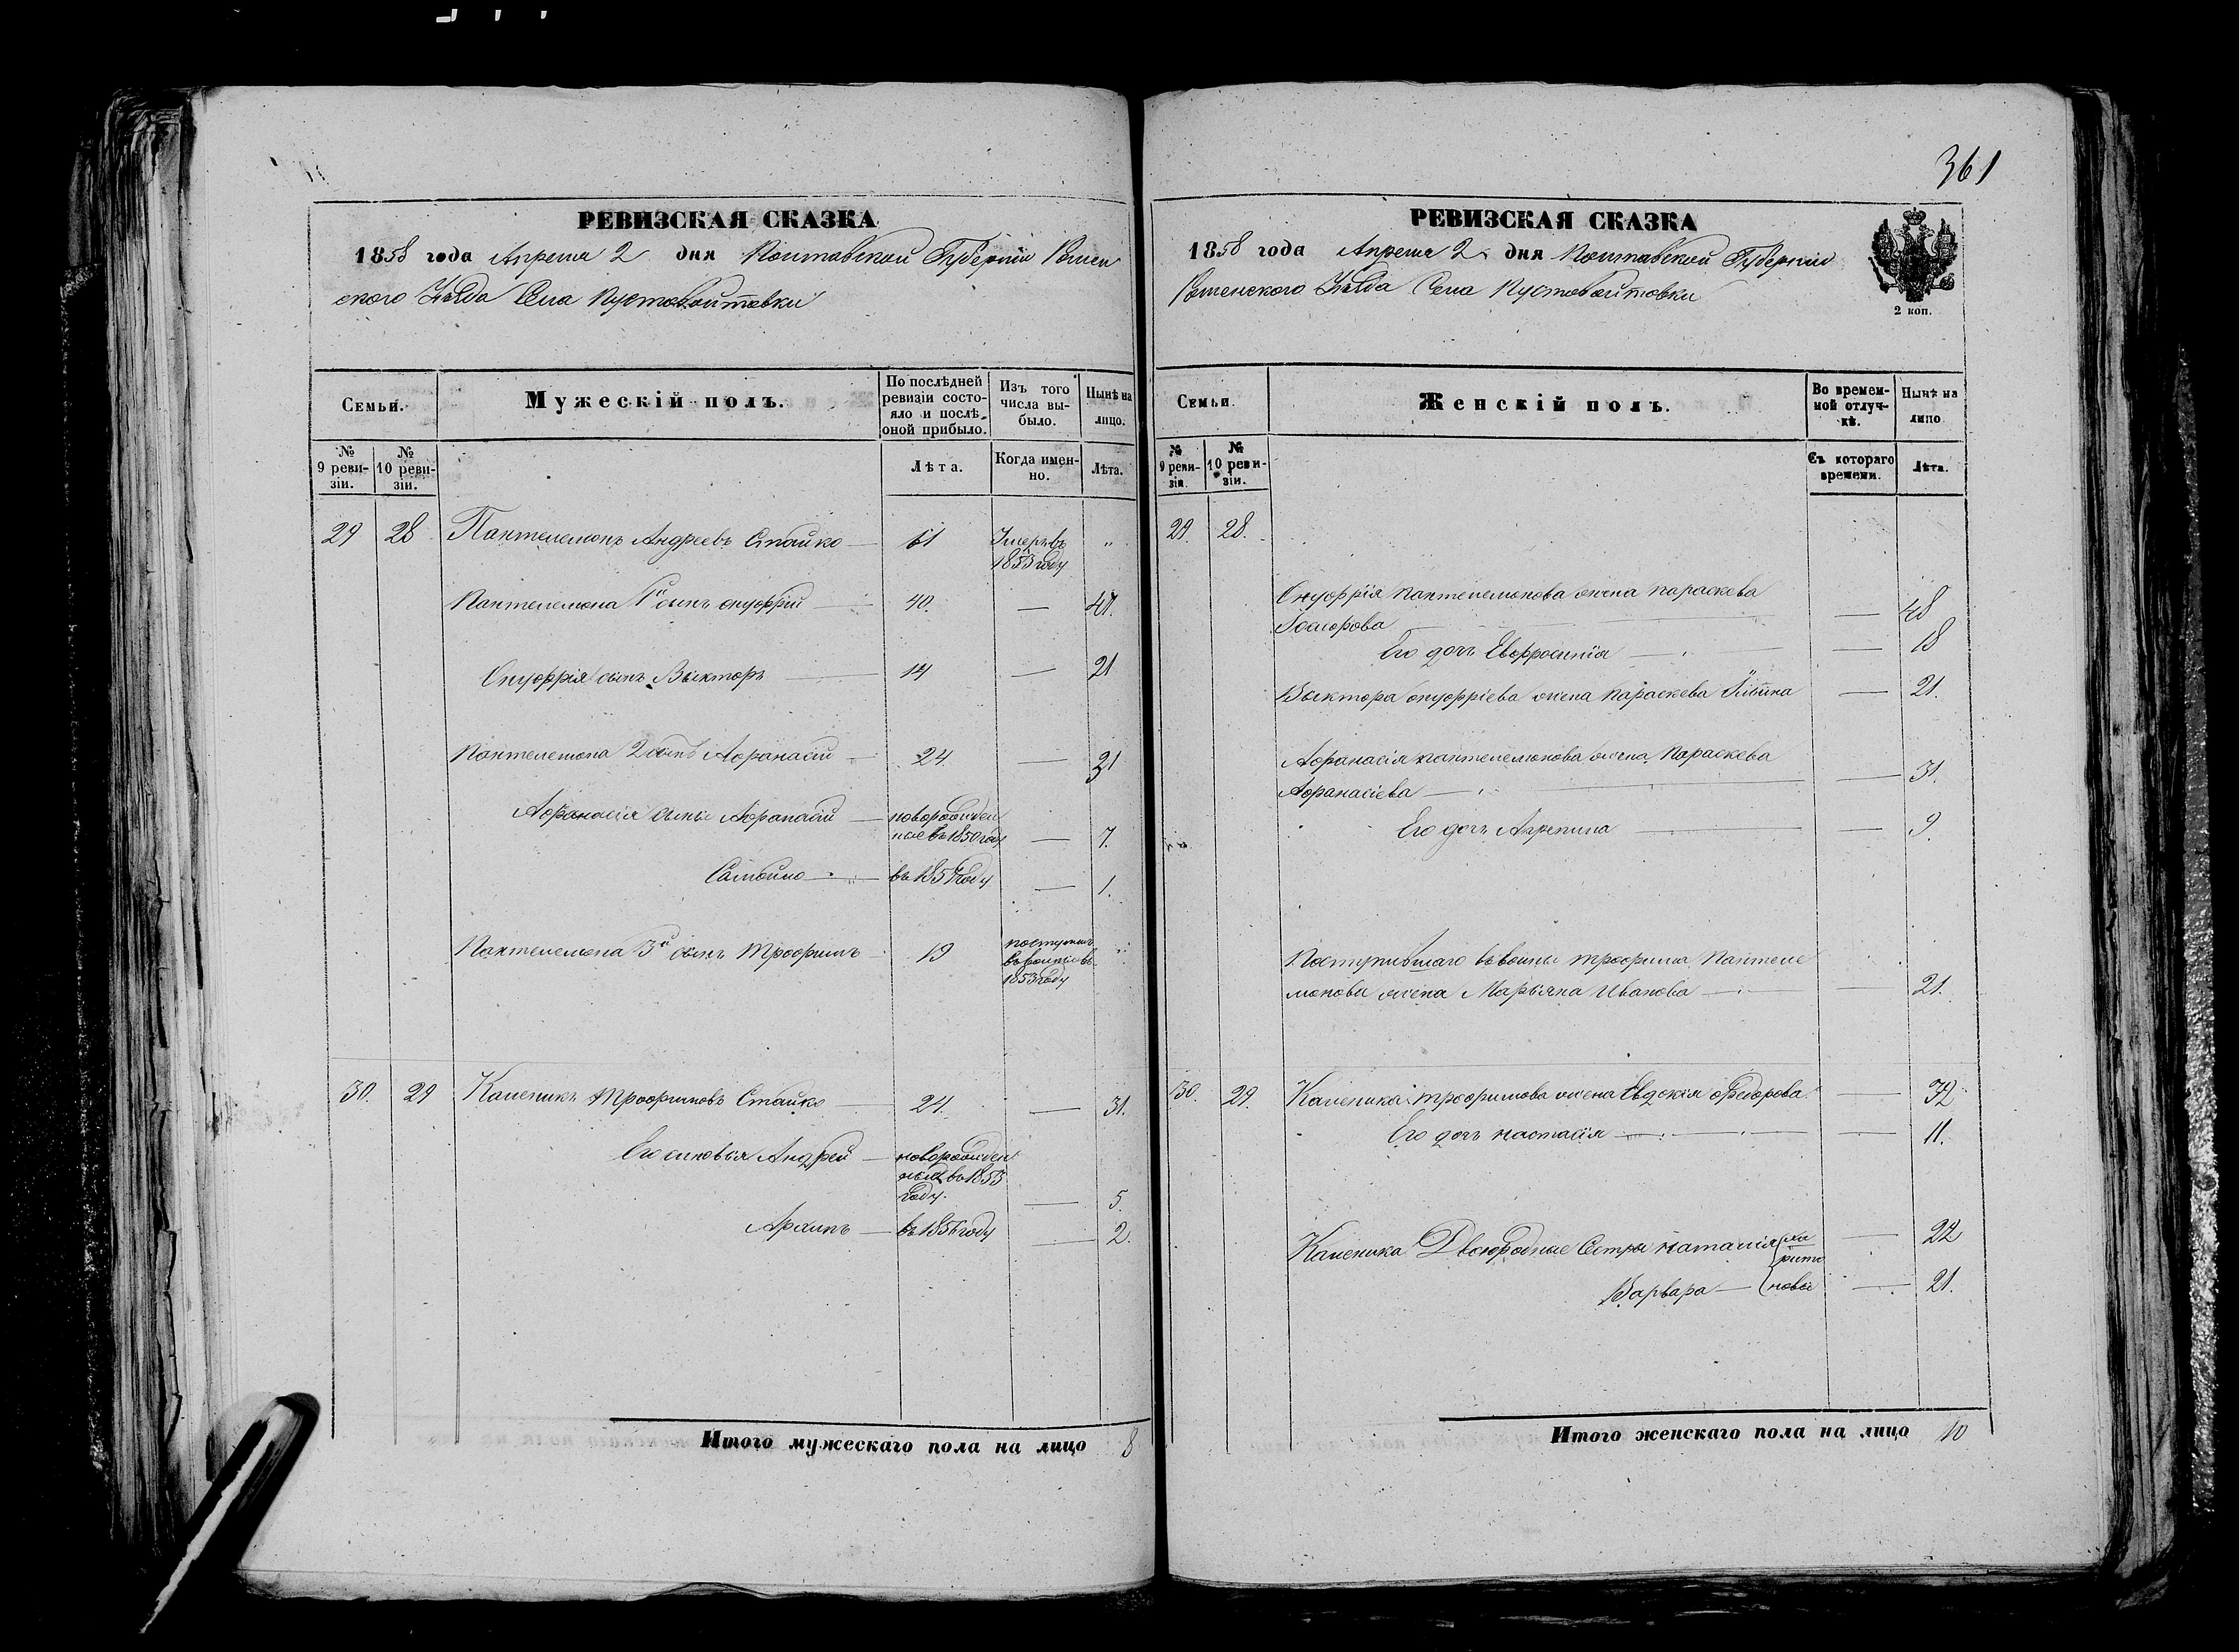 361
РЕВИЗСКАЯ СКАЗКА
1858 года Апреля 2 дня Полтавской Губерніи Ромен
ского Уѣзда Села Пустовойтовки
Семьи.
Мужескій полъ.
По послѣдней ревизіи состояло и послѣ оной прибыло.
Изъ того числа выбыло.
Нынѣ на лицо.
№ 9 ревизіи.
№ 10 ревизіи.
Лѣта.
Когда именно.
Лѣта.
29 28 Пантелемонъ Андреевъ Стайко 61 Умеръ въ 1855 году "
Пантелемона 1й сынъ Онуфрій 40. — 47.
Онуфрія сынъ Выкторъ 14 — 21
Пантелемона 2 сынъ Афанасій 24 — 31
Афанасія сыны Афанасій — новорожден
ные въ 1850 году — 7.
Самойло — въ 1857 году — 1.
Пантелемона 3й сынъ Трофимъ 19 поступилъ
въ 1853 году "
30. 29 Каленикъ Трофимовъ Стайко 24. — 31.
Его сыновья Андрей — новорожден
въ 1853
году. — 5.
Архипъ — въ 1856 году — 2.
Итого мужескаго пола на лицо 8
РЕВИЗСКАЯ СКАЗКА
1858 года Апреля 2 дня Полтавской Губерніи
Роменского Уѣзда Села Пустовойтовки
2 коп.
Семьи.
Женскій полъ.
Во временной отлучкѣ.
Нынѣ на лицо
№ 9 ревизіи.
№ 10 ревизіи.
Съ котораго времени.
Лѣта.
29. 28.
Онуфрія Пантелемонова жена Параскева
— 48
Его дочь Евфросинія — 18
Выктора Онуфріева жена Параскева — 21.
Афанасія Пантелемонова жена Параскева
Афанасіева — 31.
Его дочь — 9.
Поступившаго въ Трофима Пантеле
монова жена Марьяна Иванова — 21.
30. 29. Каленика Трофимова жена Евдокія Федорова — 32
Его дочь Настасія — 11.
Каленика Двоюродные Сестры Наталія ха — 22
рито
Варвара — новы — 21.
Итого женскаго пола на лицо 10